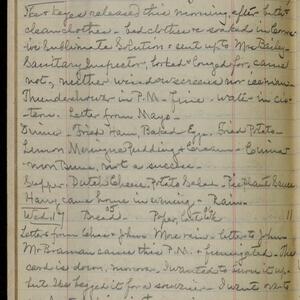 Ther keyes released this morning after bath
clean clothes - bed clothes soaked in Corros-
ive Sublimate Solution & sent up to Mrs Bailey -
Sanitary Inspector, looked & longed for, came
not, neither window screens nor
Thundershower in P.M. - Fine - water in cis-
tern. Letter from Mayo -
Dinner - Fried Ham, Baked Egg, Fried Potato
Lemon Meringue Pudding & Cream -
mon Buns, not a success -
Supper: Dutch Cheese, Potato Salad - Pieplant Sauce
Harry came home in evening - Rain -
Wed. 17 Bread - 11
Letter from Chas & John. More rain - letter to John
Mr Braman came this P.M. & fumigated - The
card is down,
but he begged it for a souvenir - I went over to